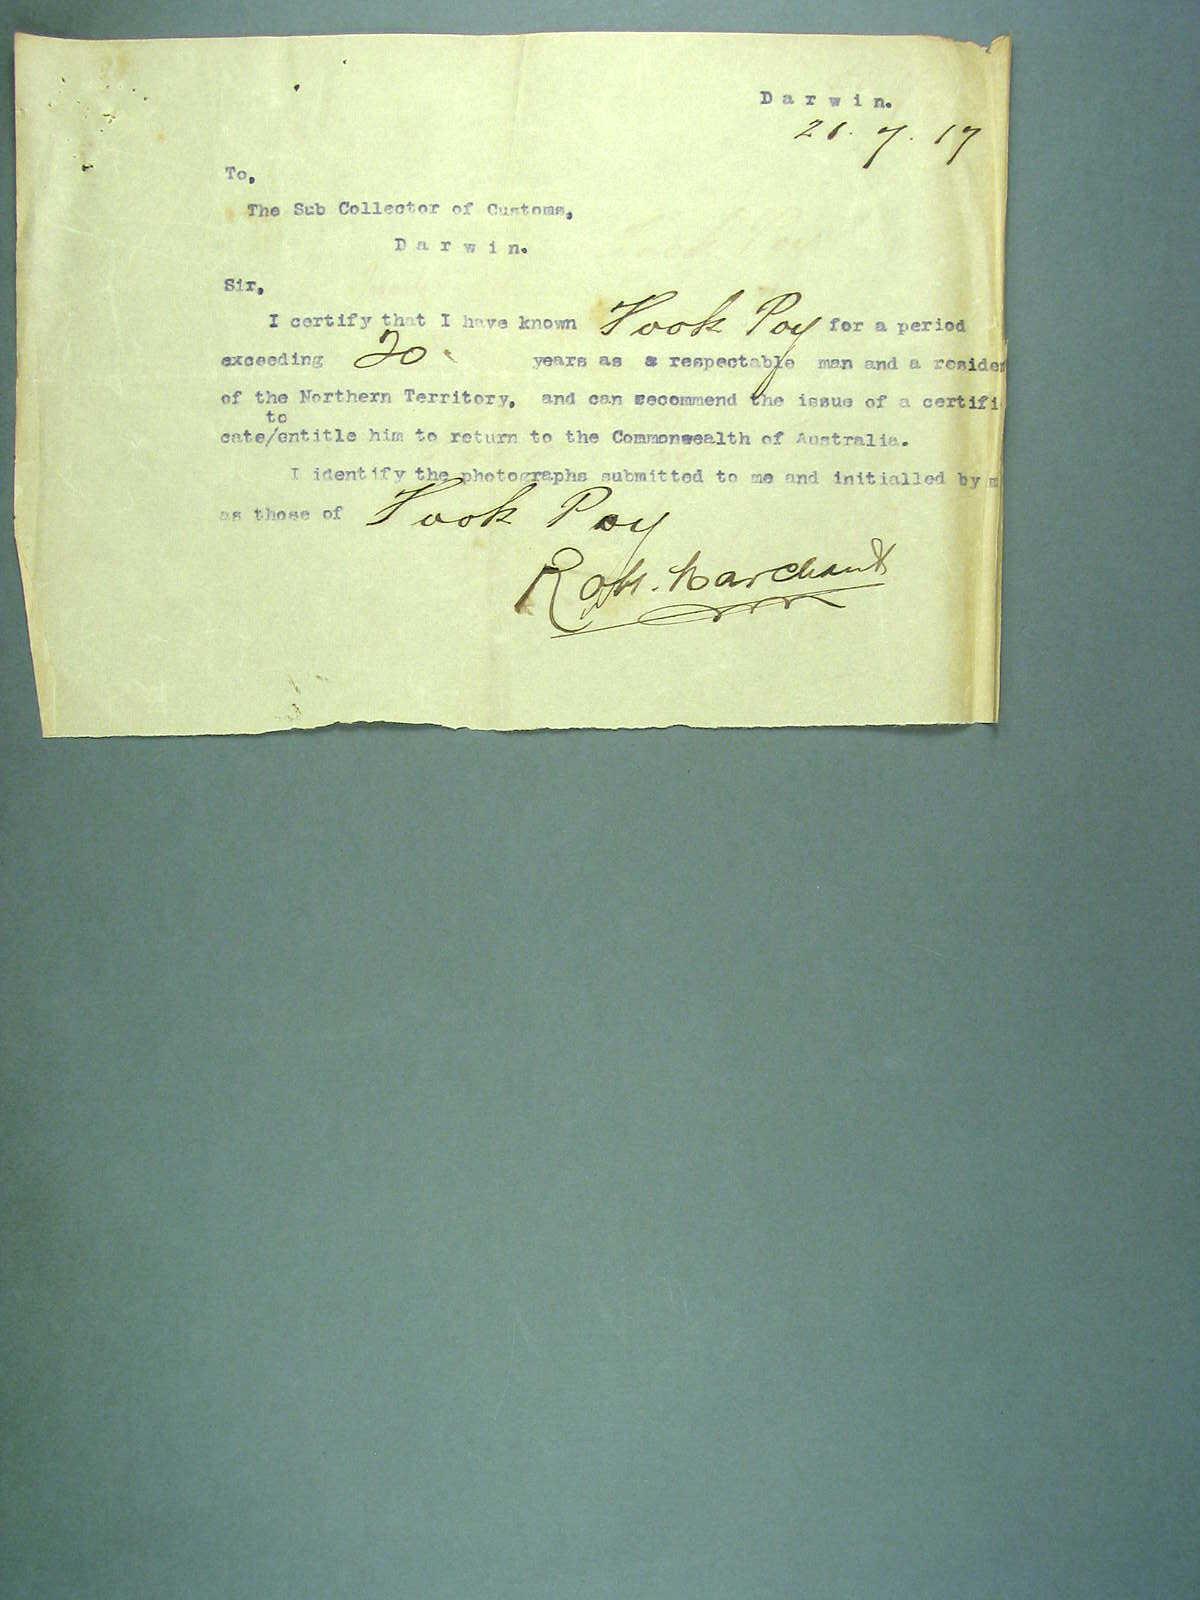 Darwin.
21.7.17
To,
The Sub Collector of Customs,
Darwin.
Sir,
I certify that I have known Fook Poy for a period
exceeding 20 years as a respectable man and a residen
of the Northern Territory, and can recommend the issue of a certifi
to
cate/entitle him to return to the Commonwealth of Australia.
I identify the photographs submitted to me and initialled by m
as those of Fook Poy
Robt. Marchant